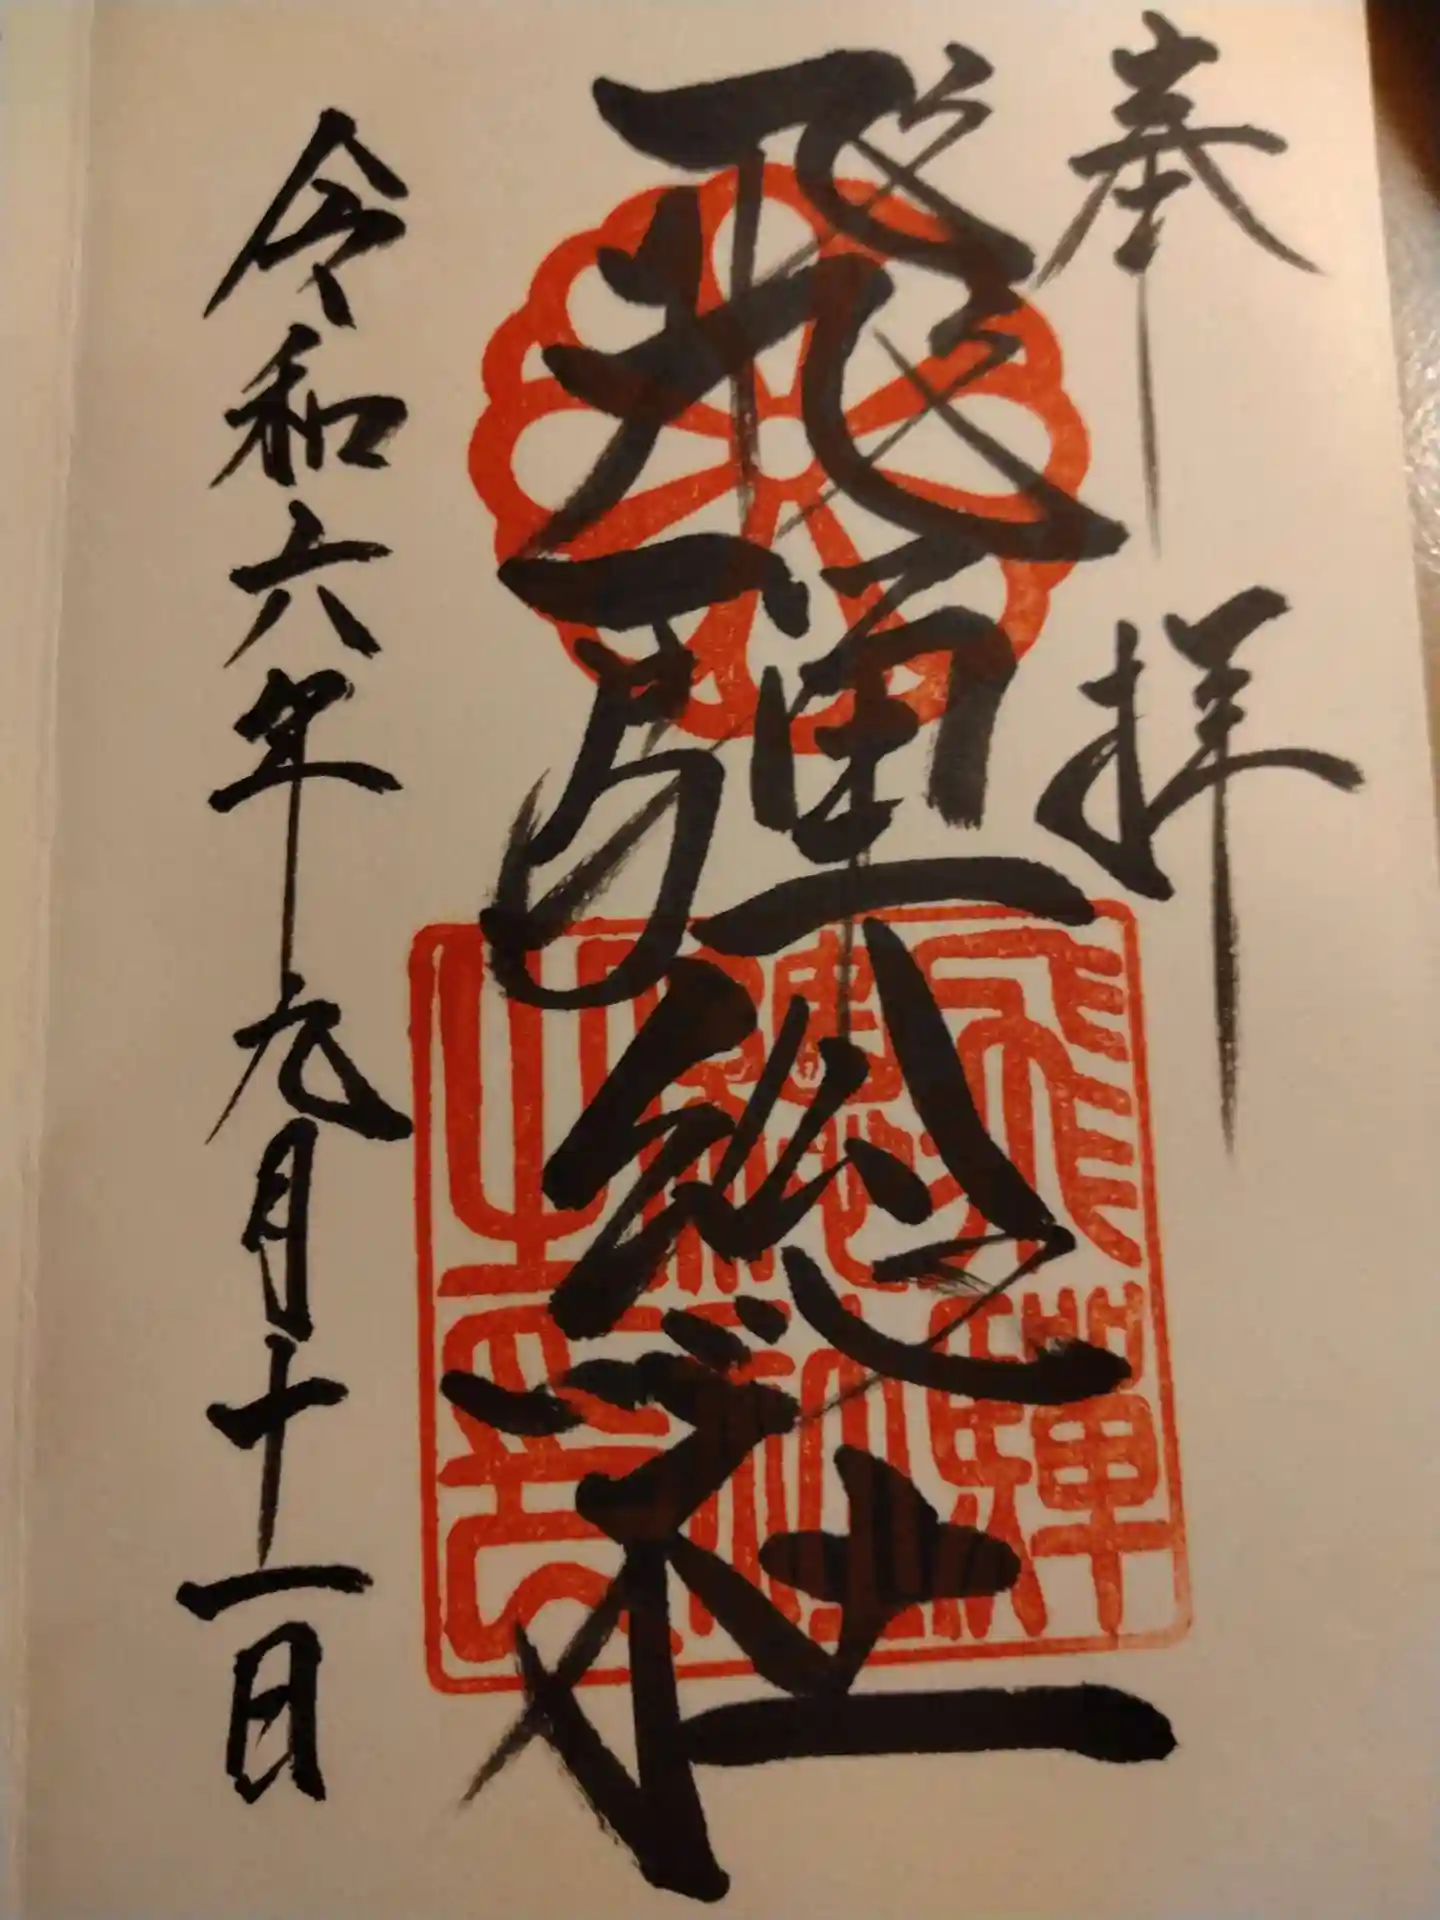 奉拝
飛騨総社
飛驒總社之印
令和六年元月十一日